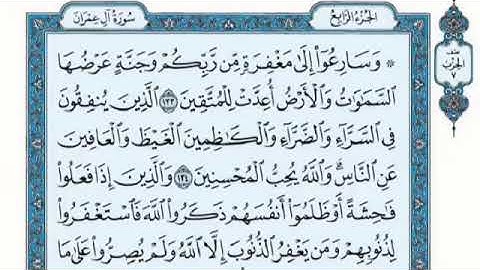 سُورَةُ آلِ عِمْرَانَ
الجُزْءُ الرَّابِعُ
نصف
الحزب
٧
۞ وَسَارِعُوٓا۟ إِلَىٰ مَغْفِرَةٍ مِّن رَّبِّكُمْ وَجَنَّةٍ عَرْضُهَا
ٱلسَّمَٰوَٰتُ وَٱلْأَرْضُ أُعِدَّتْ لِلْمُتَّقِينَ ١٣٣ ٱلَّذِينَ يُنفِقُونَ
فِى ٱلسَّرَّآءِ وَٱلضَّرَّآءِ وَٱلْكَٰظِمِينَ ٱلْغَيْظَ وَٱلْعَافِينَ
عَنِ ٱلنَّاسِ ۗ وَٱللَّهُ يُحِبُّ ٱلْمُحْسِنِينَ ١٣٤ وَٱلَّذِينَ إِذَا فَعَلُوا۟
فَٰحِشَةً أَوْ ظَلَمُوٓا۟ أَنفُسَهُمْ ذَكَرُوا۟ ٱللَّهَ فَٱسْتَغْفَرُوا۟
لِذُنُوبِهِمْ وَمَن يَغْفِرُ ٱلذُّنُوبَ إِلَّا ٱللَّهُ وَلَمْ يُصِرُّوا۟ عَلَىٰ مَا